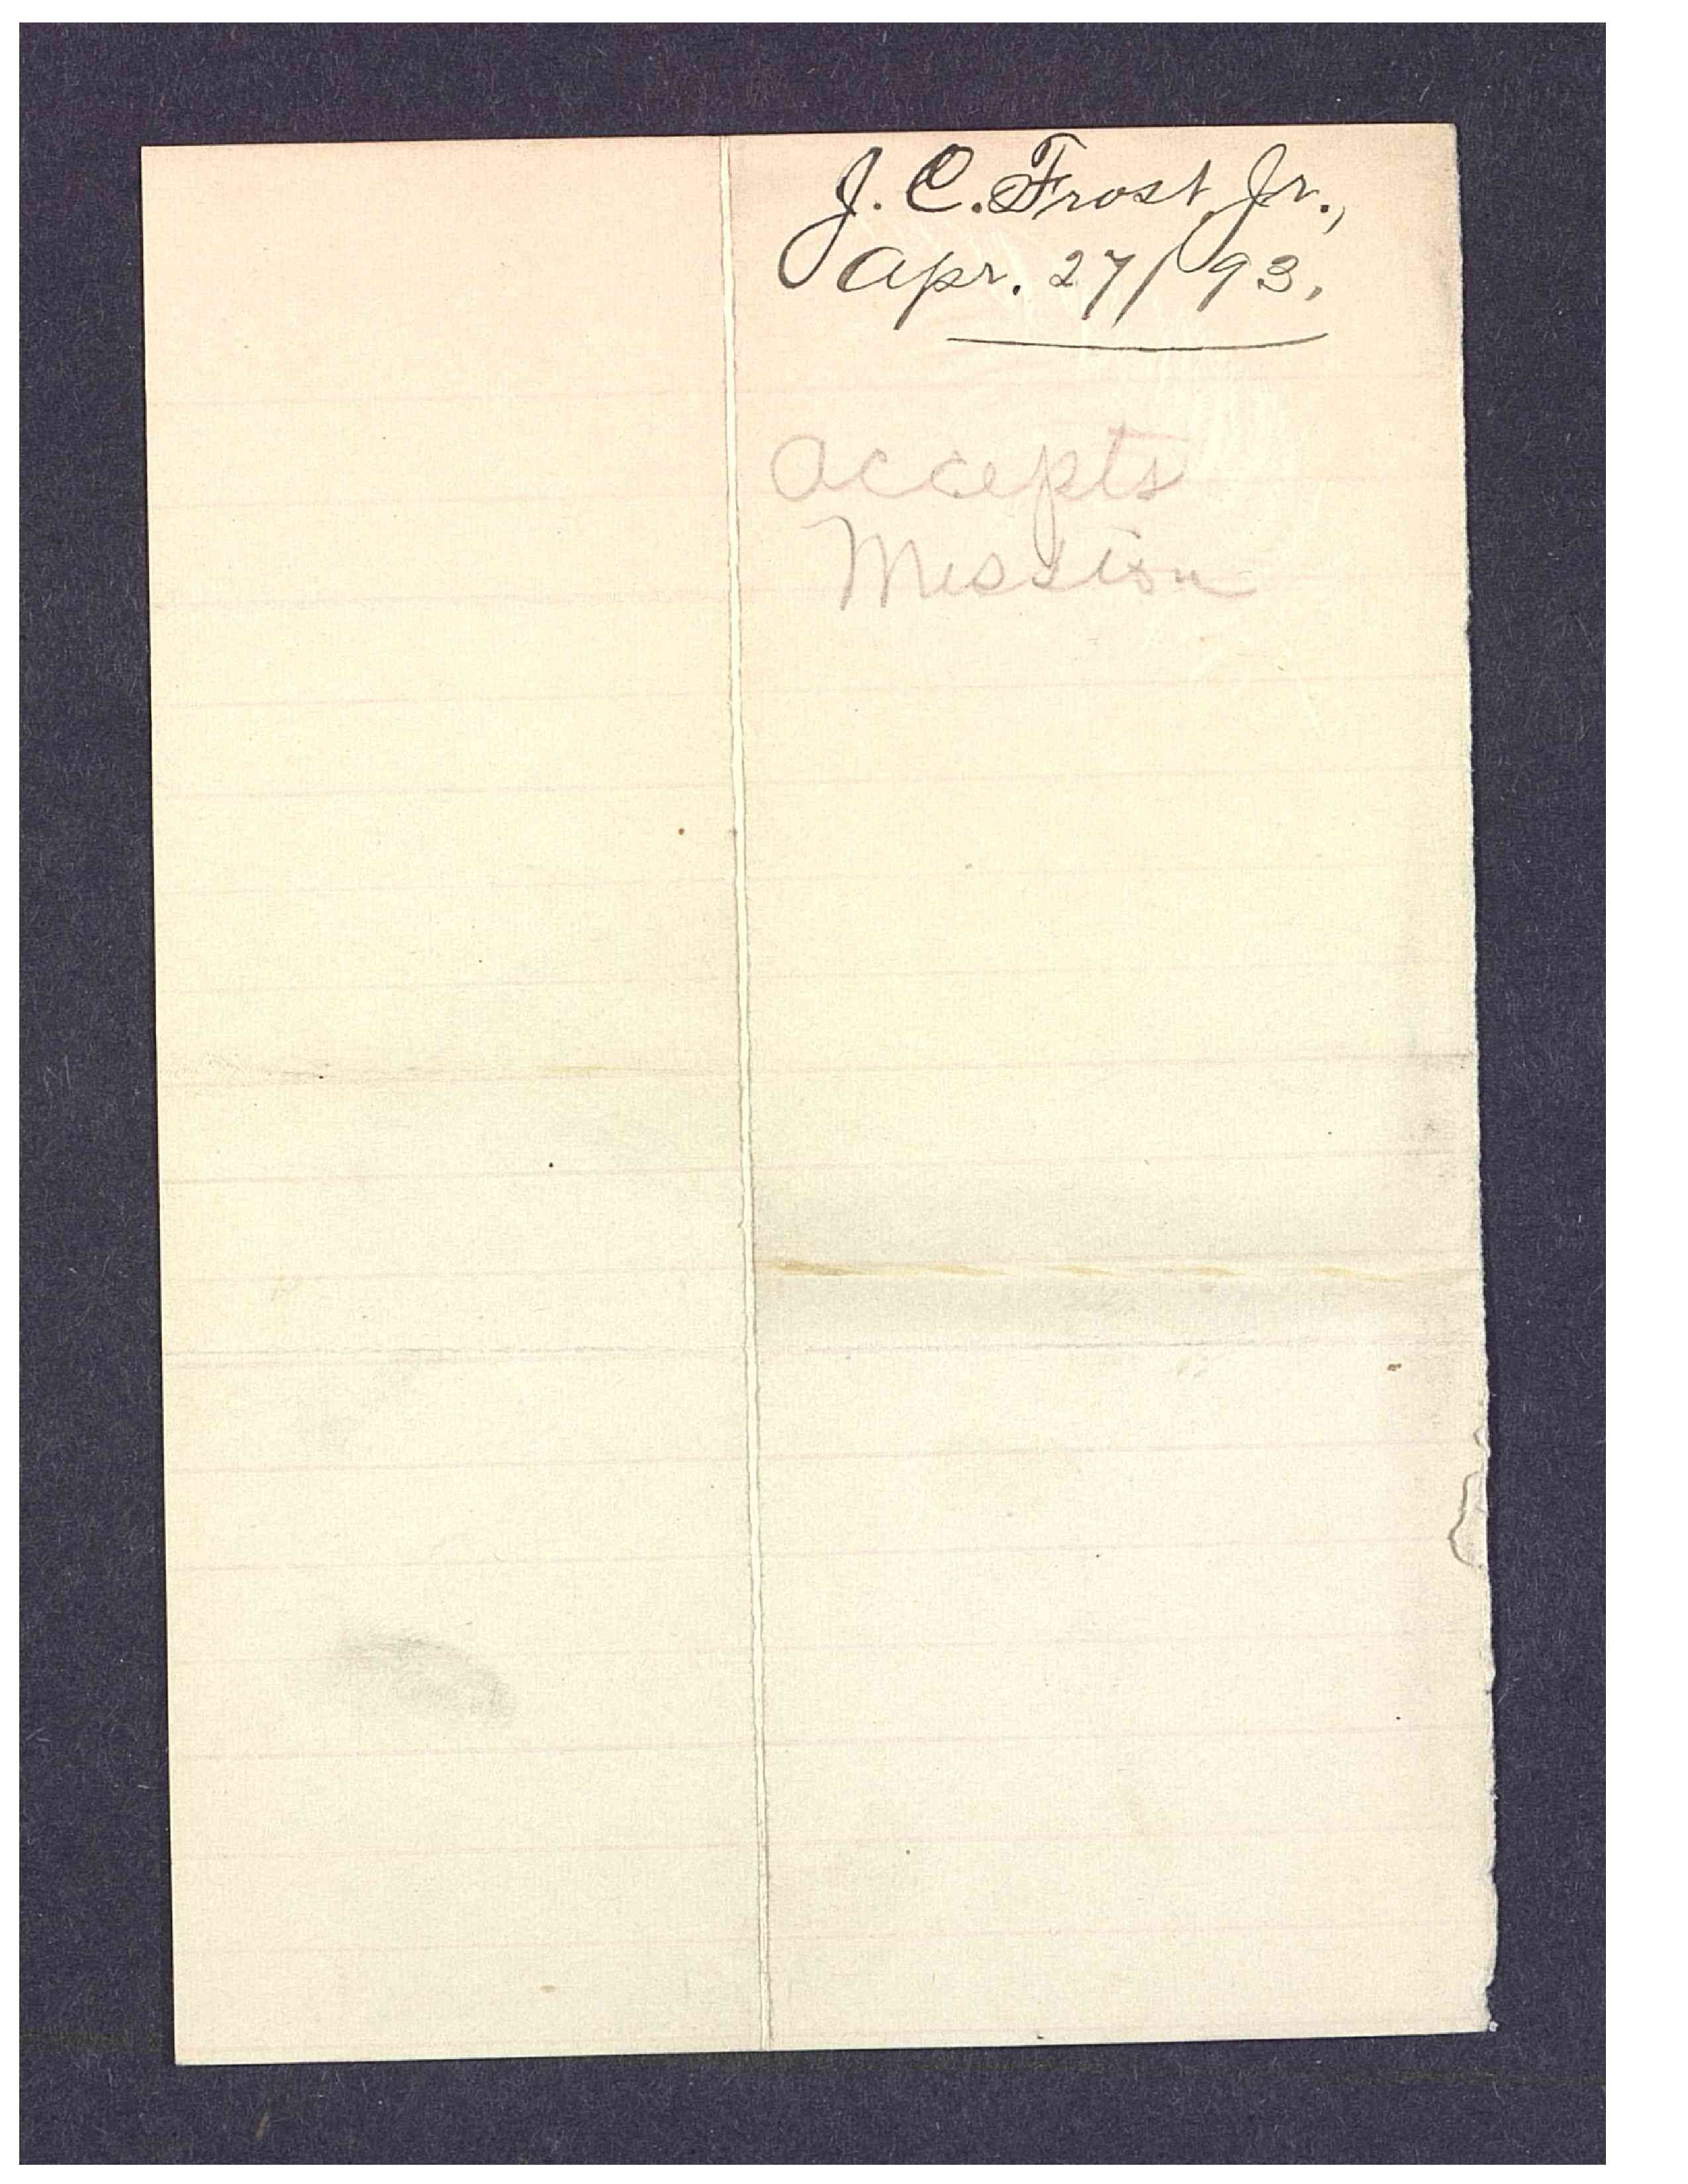 J. C. Frost, Jr.,
Apr. 27/93.
accepts
Mission